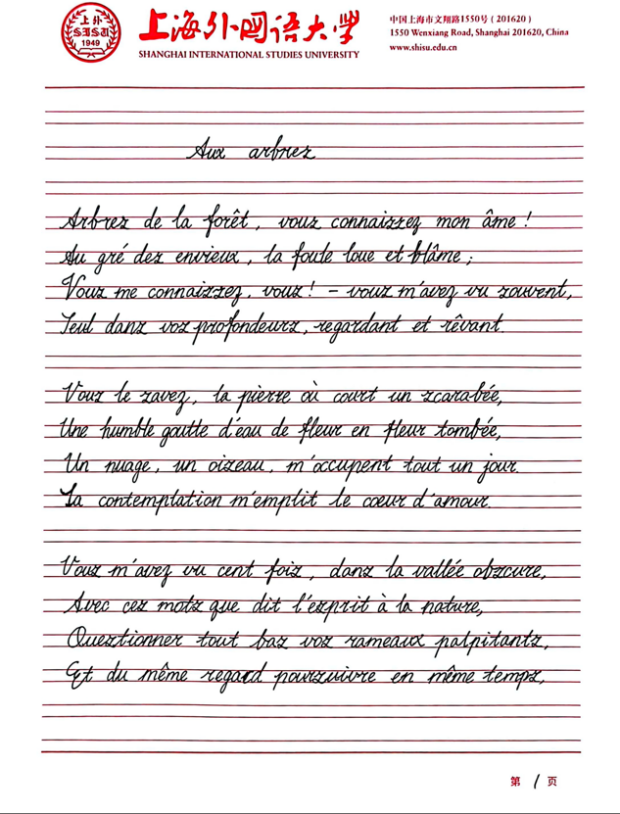 上外
SISU
1949
上海外国语大学
SHANGHAI INTERNATIONAL STUDIES UNIVERSITY
中国上海市文翔路1550号(201620)
1550 Wenxiang Road, Shanghai 201620, China
www.shisu.edu.cn
Aux arbres
Arbres de la forêt, vous connaissez mon âme !
Au gré des envieux, la foule loue et blâme ;
Vous me connaissez, vous ! - vous m'avez vu souvent,
Seul dans vos profondeurs, regardant et rêvant.
Vous le savez, la pierre où court un scarabée,
Une humble goutte d'eau de fleur en fleur tombée,
Un nuage, un oiseau, m'occupent tout un jour.
La contemplation m'emplit le coeur d'amour.
Vous m'avez vu cent fois, dans la vallée obscure,
Avec ces mots que dit l'esprit à la nature,
Questionner tout bas vos rameaux palpitants,
Et du même regard poursuivre en même temps,
第 1 页